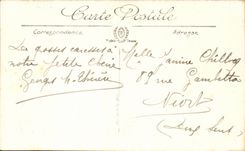 Carte Postale
Correspondance
Adresse
Les grosses caresses à
notre petite chérie
Georges & Thérèse
Melle Janine
89 rue Gambetta
Niort
(Deux Sèvres)